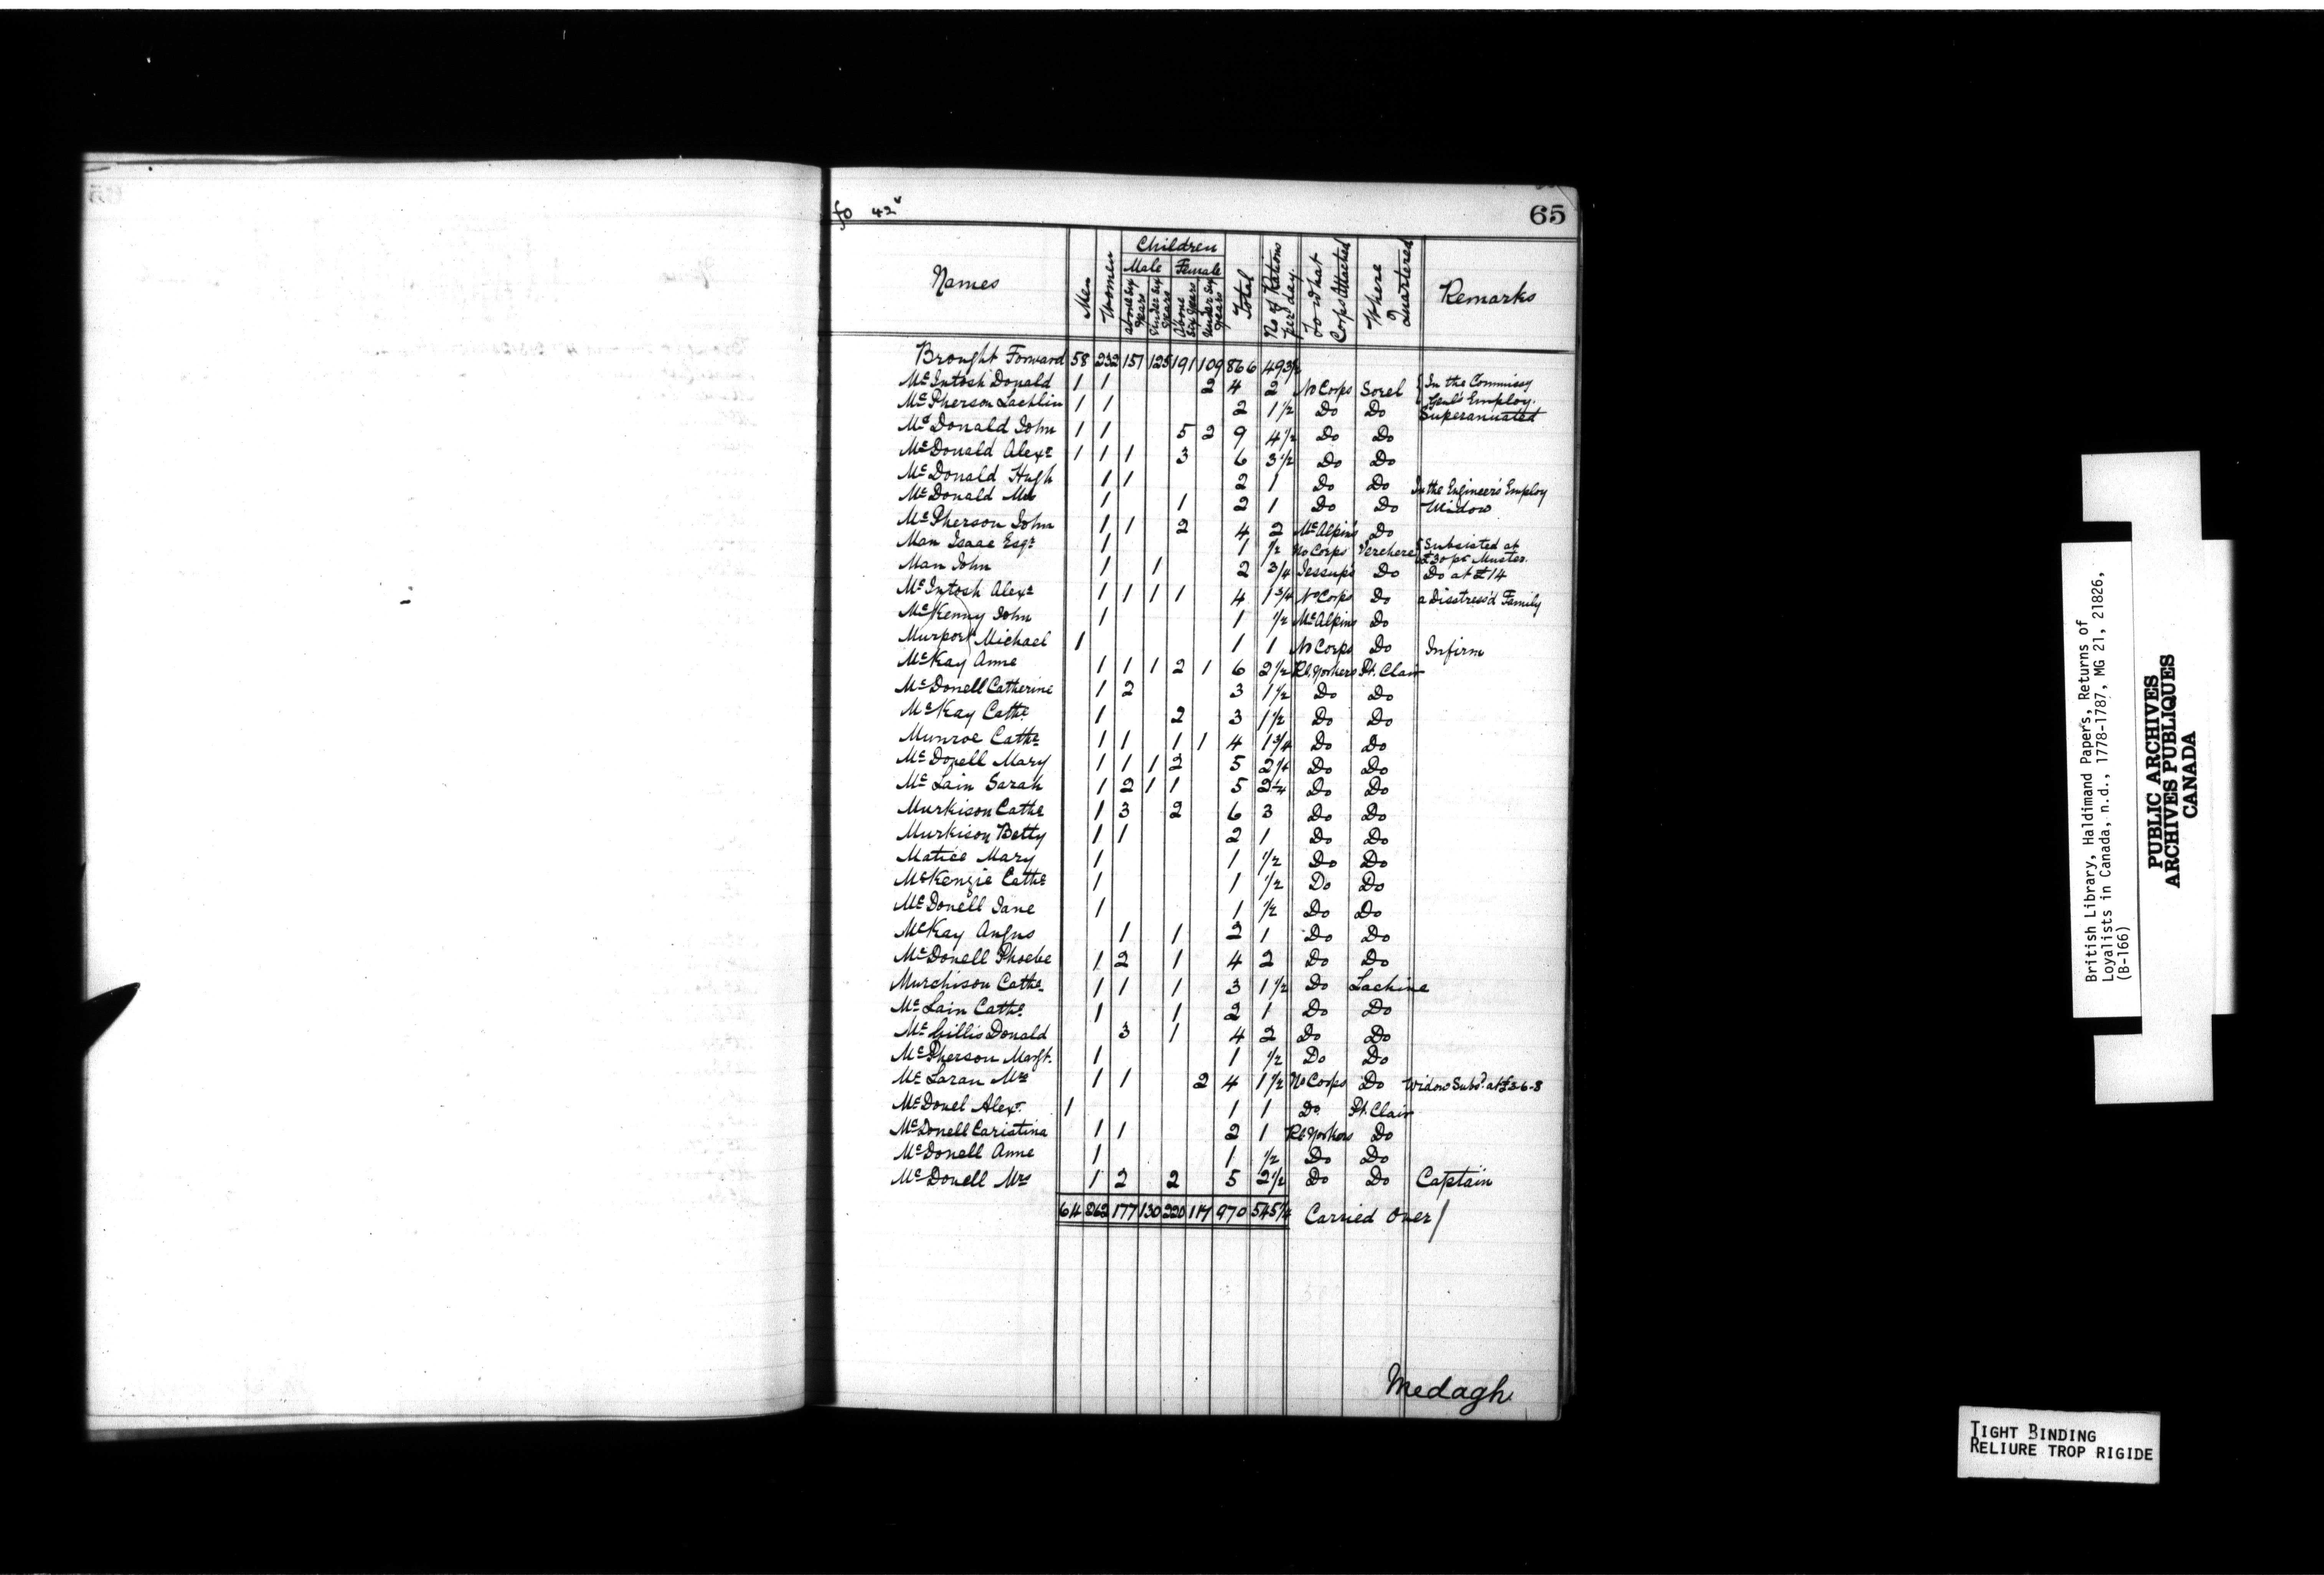 fo 42v
65
Names
Men
Women
Children
Male
Female
above six years
Under six years
Above six years
Under six years
Total
No of Rations per day.
To what Corps Attached
Where Quartered
Remarks
Brought Forward 58 232 157 125 191 109 866 493½
McIntosh Donald 1 1 2 4 2 No Corps Sorel { In the Commissy Genl's Employ.
McPherson Lachlin 1 1 2 1½ Do Do Superanuated
McDonald John 1 1 5 2 9 4½ Do Do
McDonald Alexr 1 1 1 3 6 3½ Do Do
McDonald Hugh 1 1 2 1 Do Do In the Engineer's Employ
McDonald Mrs 1 1 2 1 Do Do Widow
McPherson John 1 1 2 4 2 McAlpin's Do
Man Isaac Esqr 1 1 ½ No Corps Verchere { Subsisted at £30 pr Muster.
Man John 1 1 2 3/4 Jessup's Do Do at £14
McIntosh Alexr 1 1 1 1 4 1 3/4 No Corps Do a Disstress'd Family
McKenny John 1 1 ½ McAlpins Do
Murport Michael 1 1 1 No Corps Do Infirm
McKay Anne 1 1 1 2 1 6 2½ Rl. Yorkers Pt. Clair
McDonell Catherine 1 2 3 1½ Do Do
McKay Cathe 1 2 3 1½ Do Do
Munroe Cathe 1 1 1 1 4 1 3/4 Do Do
McDonell Mary 1 1 1 2 5 2 1/4 Do Do
McLain Sarah 1 2 1 1 5 2 1/4 Do Do
Murkison Cathe 1 3 2 6 3 Do Do
Murkison Betty 1 1 2 1 Do Do
Matice Mary 1 1 ½ Do Do
McKenzie Cathe 1 1 ½ Do Do
McDonell Jane 1 1 ½ Do Do
McKay Angus 1 1 2 1 Do Do
McDonell Phoebe 1 2 1 4 2 Do Do
Murchison Cathe 1 1 1 3 1½ Do Lachine
McLain Cathe 1 1 2 1 Do Do
McGillis Donald 3 1 4 2 Do Do
McPherson Margt. 1 1 ½ Do Do
McLaran Mrs 1 1 2 4 1½ No Corps Do Widow Subd. at £3-6-8
McDonel Alexr. 1 1 1 Do Pt. Clair
McDonell Caristina 1 1 2 1 Rl. Yorkers Do
McDonell Anne 1 1 ½ Do Do
McDonell Mrs 1 2 2 5 2½ Do Do Captain
64 262 177 130 220 117 970 545 1/4 Carried Over/
Medagh
British Library, Haldimand Papers, Returns of
Loyalists in Canada, n.d., 1778-1787, MG 21, 21826,
(B-166)
PUBLIC ARCHIVES
ARCHIVES PUBLIQUES
CANADA
TIGHT BINDING
RELIURE TROP RIGIDE